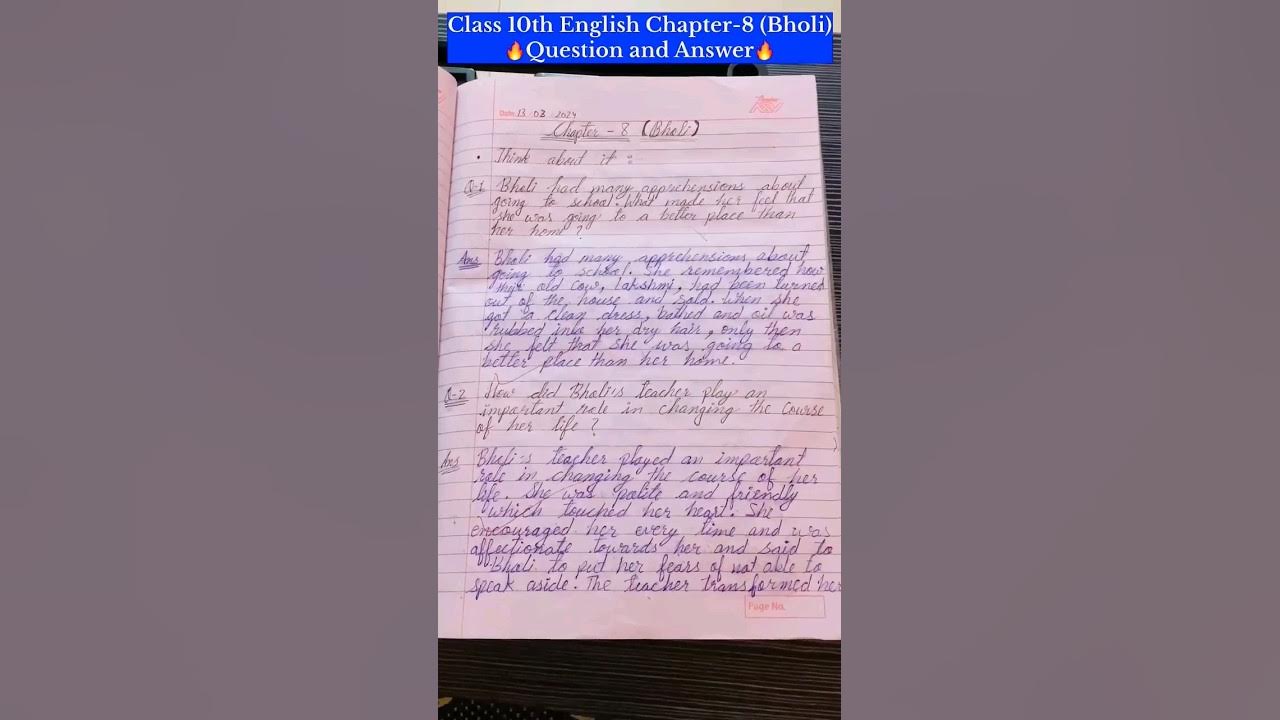 Class 10th English Chapter-8 (Bholi)
🔥Question and Answer🔥
Date 13 03 2024
Chapter - 8 (Bholi)
• Think about it :
Q-1 Bholi had many apprehensions about
going to school. What made her feel that
she was going to a better place than
her home ?
Ans Bholi had many apprehensions about
going to school. She remembered how
their old cow, lakshmi, had been turned
out of the house and sold. When she
got a clean dress, bathed and oil was
rubbed into her dry hair, only then
she felt that she was going to a
better place than her home.
Q-2 How did Bholi's teacher play an
important role in changing the course
of her life ?
Ans Bholi's teacher played an important
role in changing the course of her
life. She was polite and friendly
which touched her heart. She
encouraged her every time and was
affectionate towards her and said to
Bholi to put her fears of not able to
speak aside. The teacher transformed her
Page No.